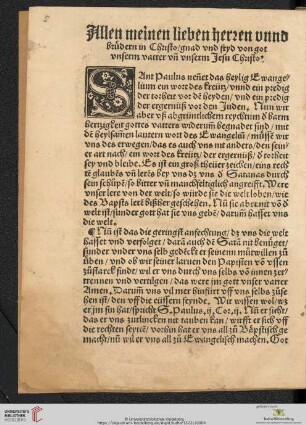 Allen meinen lieben herren vnnd
brüdern in Christo/gnad vnd fryd von got
vnserm vatter vñ vnserm Jesu Christo.
SAnt Paulus neñet das heylig Ewange-
lium ein wort des kreütz/vnnd ein predig
der torheit vor dē heyden/vnd ein predig
der ergernüß vor den Juden. Nun wir
aber vß abgrüntlichem reychtum & barm
hertzigkeit gottes vatters widerum begnadet sind/mit
dē heylsamen lautern wort des Ewangeliũ/müssē wir
vns des erwegen/das es auch vns nit anders/den sein-
er art nach/ein wort des kreütz/der ergernüß/& torheit
sey vnd bleibe. Es ist ein groß theüer zeichē/eins rech
tē glaubēs vñ lerēs bey vns
sein schlipff/so starck vñ manichfeltiglich angreifft. Were
vnser lere von der welt/so würde sie die welt loben/wie
des Bapsts lere bißher geschehen. Nũ sie aber nit vō &
welt ist/sunder gott hat sie vns gebē/darum hasset vns
die welt.
¶ Nũ ist das die geringst anfechtung/dz vns die welt
hasset vnd verfolget/darā auch & Satā nit benüget/
sunder vnder vns selb gedēckt er seinenn mütwillen zü
üben/vnd ob wir seiner laruen den Papisten vō vssen
züstarck sindt/wil er vns durch vns selbs vō innen zer-
trennen und vertilgen/das were im gott vnser vater
Amen. Darum vns vil mer
ben ist/den vff die eüssern feynde. Wir wissen wol/wz
er im sin hat/spricht S. Paulus
das er vns zürlincken nit tauben kan/wirfft er sich vff
die rechten seyten/vorhin hat er vns all zü Bäpstisch ge
macht/nũ wil er vns all zü Ewangelisch machen. Got
UNIVERSITÄTS-
BIBLIOTHEK
HEIDELBERG
© Universitätsbibliothek Heidelberg